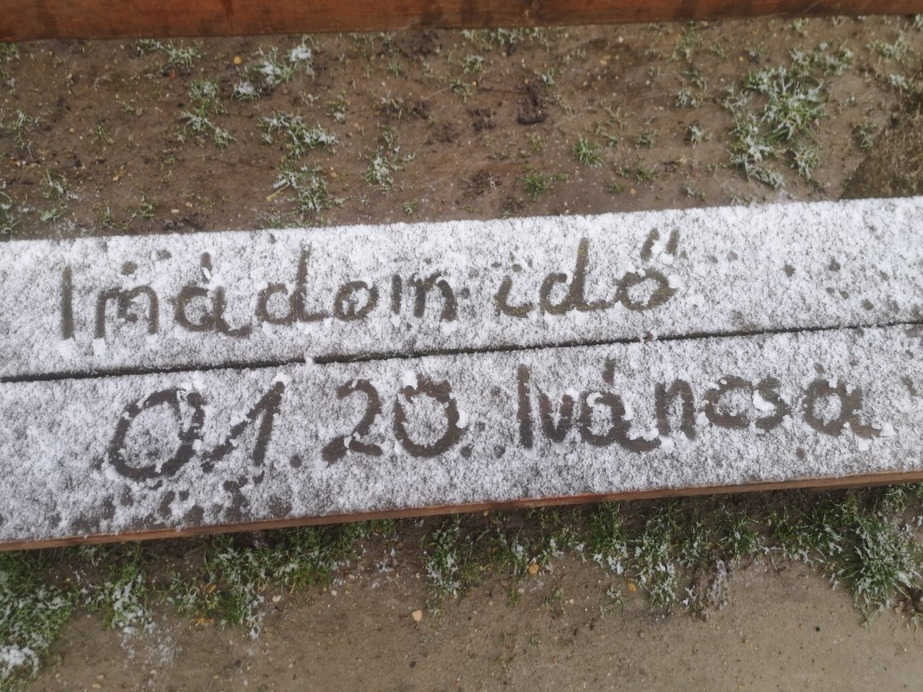 Imádom idő
01.20. Iváncsa